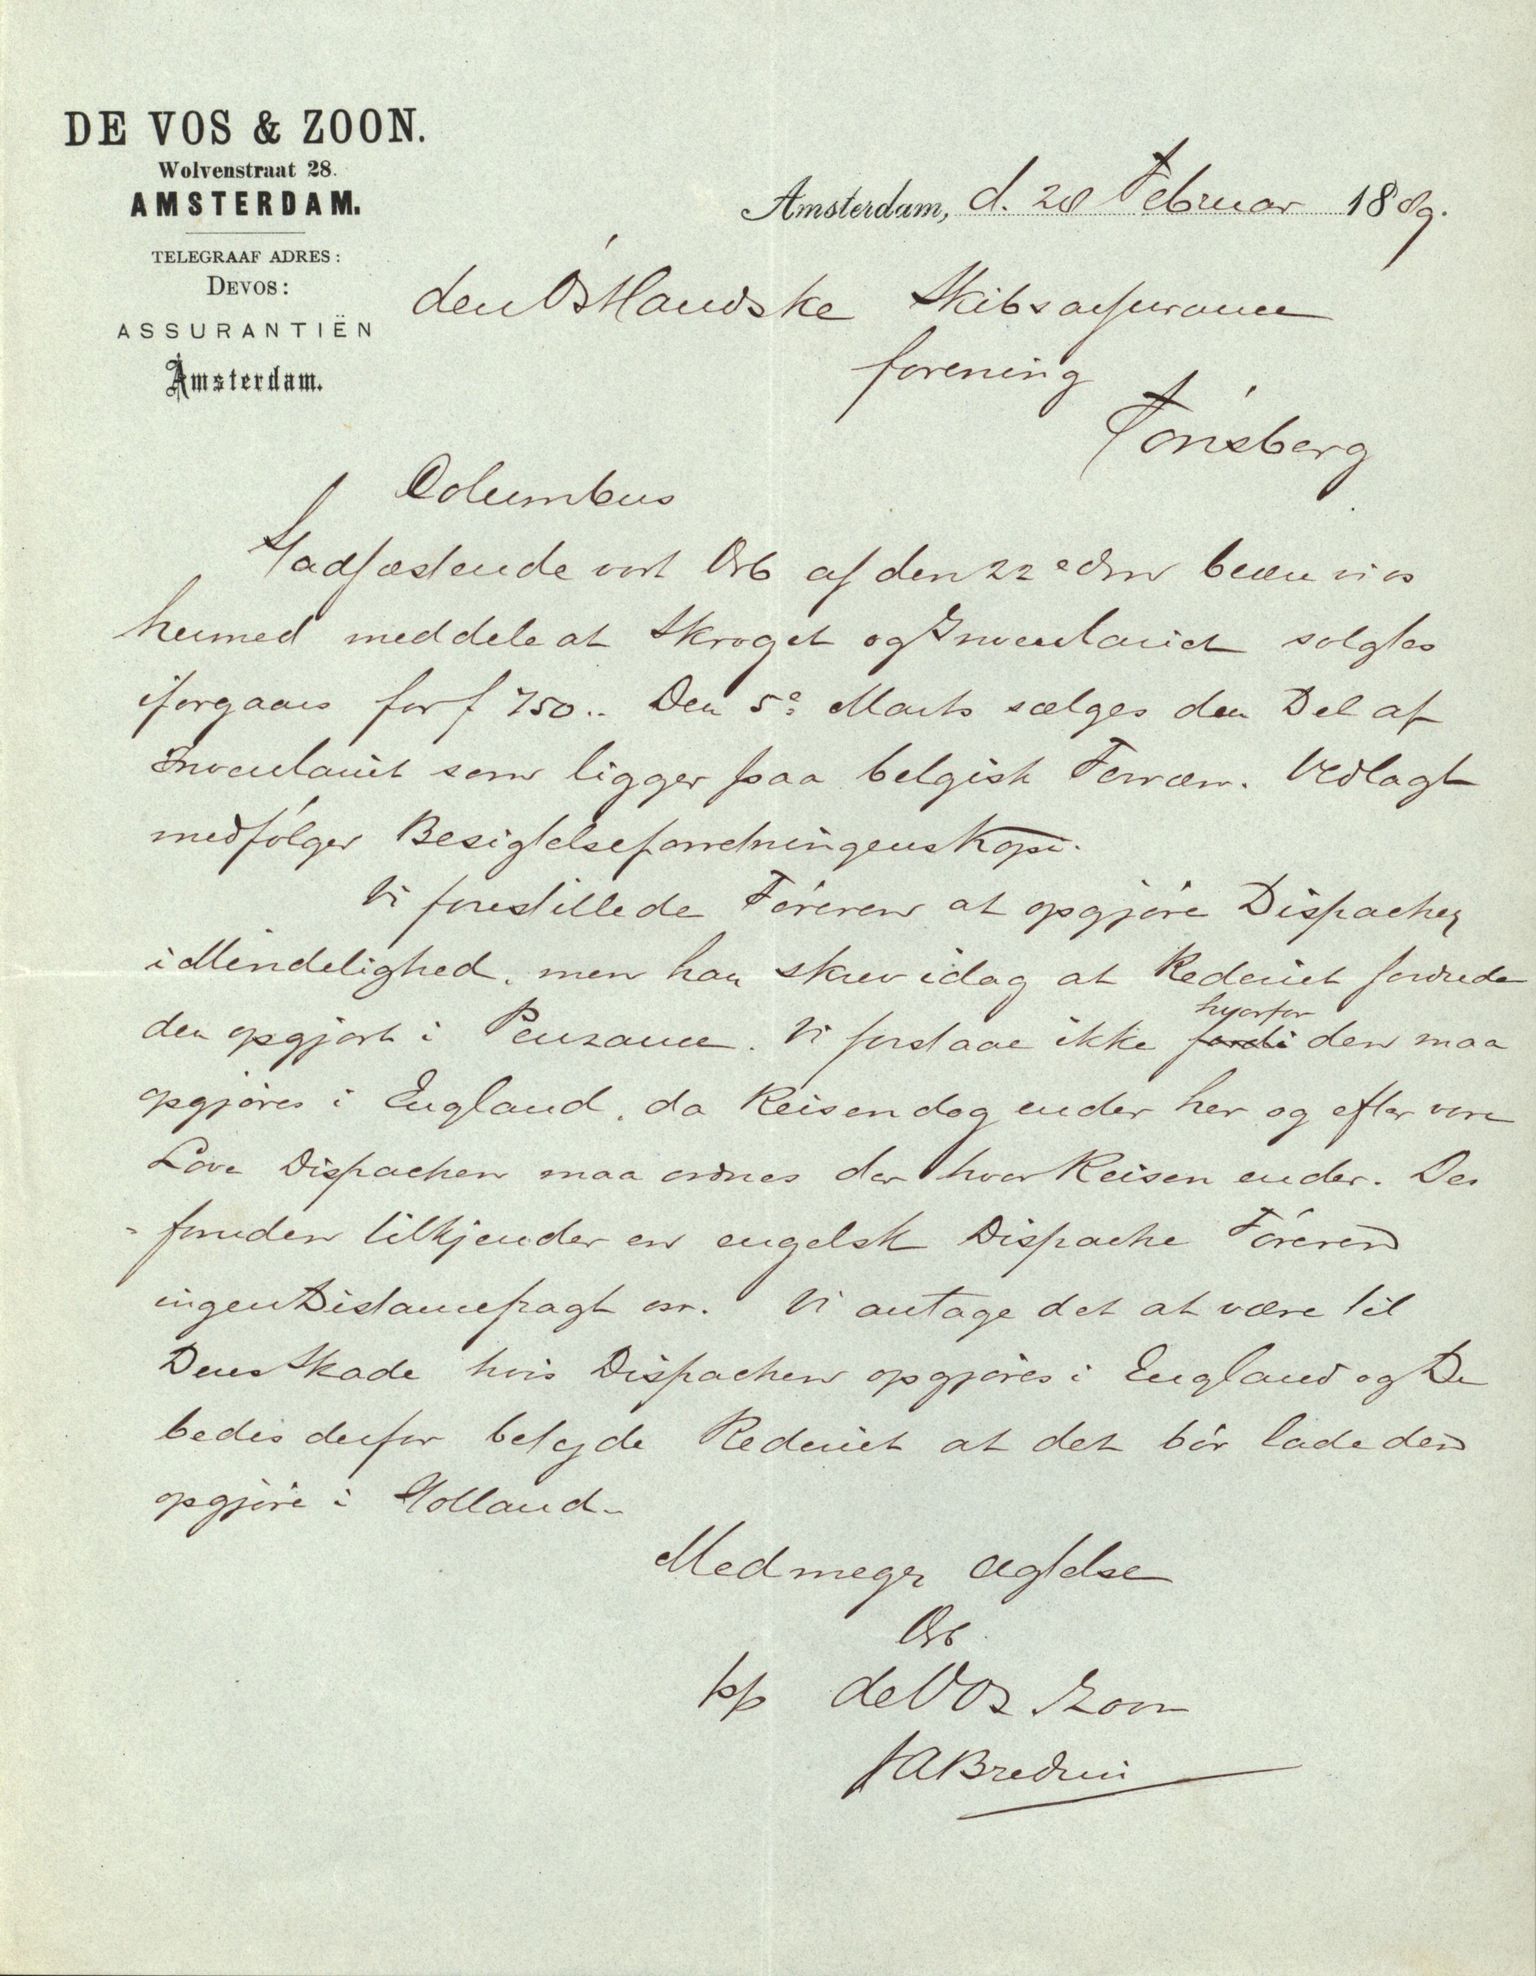 DE VOS & ZOON.
Wolvenstraat 28.
AMSTERDAM.
TELEGRAAF ADRES:
DEVOS:
ASSURANTIËN
Amsterdam.
Amsterdam, d. 28 Februar 1889.
den Östlandske Skibsassurance
forening
Tönsberg
Columbus
Stadfæstende vort Brb af den 22 edm beære vi os
hermed meddele at Skroget og Inventariet solgtes
iforgaars for f 750.. Den 5e Marts sælges den Del af
Inventariet som ligger paa belgisk Terræn. Vedlagt
medfölger Besigtelsesforretningens Kopi.
Vi forestillede Föreren at opgjöre Dispachen
i Mindelighed, men han skrev idag at Rederiet fordrede
den opgjort i Penzance. Vi forstaae ikke hvorfor den maa
opgjöres i England, da Reisen dog ender her og efter vore
Love Dispachen maa ordnes der hvor Reisen ender. Des
foruden tilkjender en engelsk Dispache Föreren
ingen Distancefragt osv. Vi antage det at være til
Deres Skade hvis Dispachen opgjöres i England og De
bedes derfor betyde Rederiet at det bör lade den
opgjöre i Holland.
Med megen Agtelse
pp de Vos & Zoon